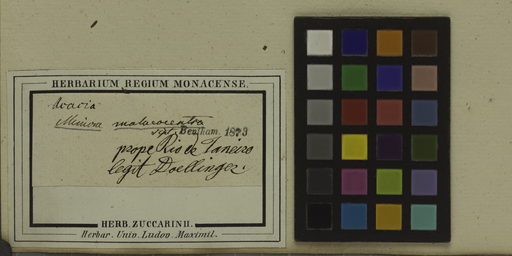 HERBARIUM REGIUM MONACENSE.
Acacia
Mimosa malacocentra
Bentham. 1873
prope Rio de Janeiro
legit Doellinger.
HERB. ZUCCARINII.
Herbar. Univ. Ludov. Maximil.